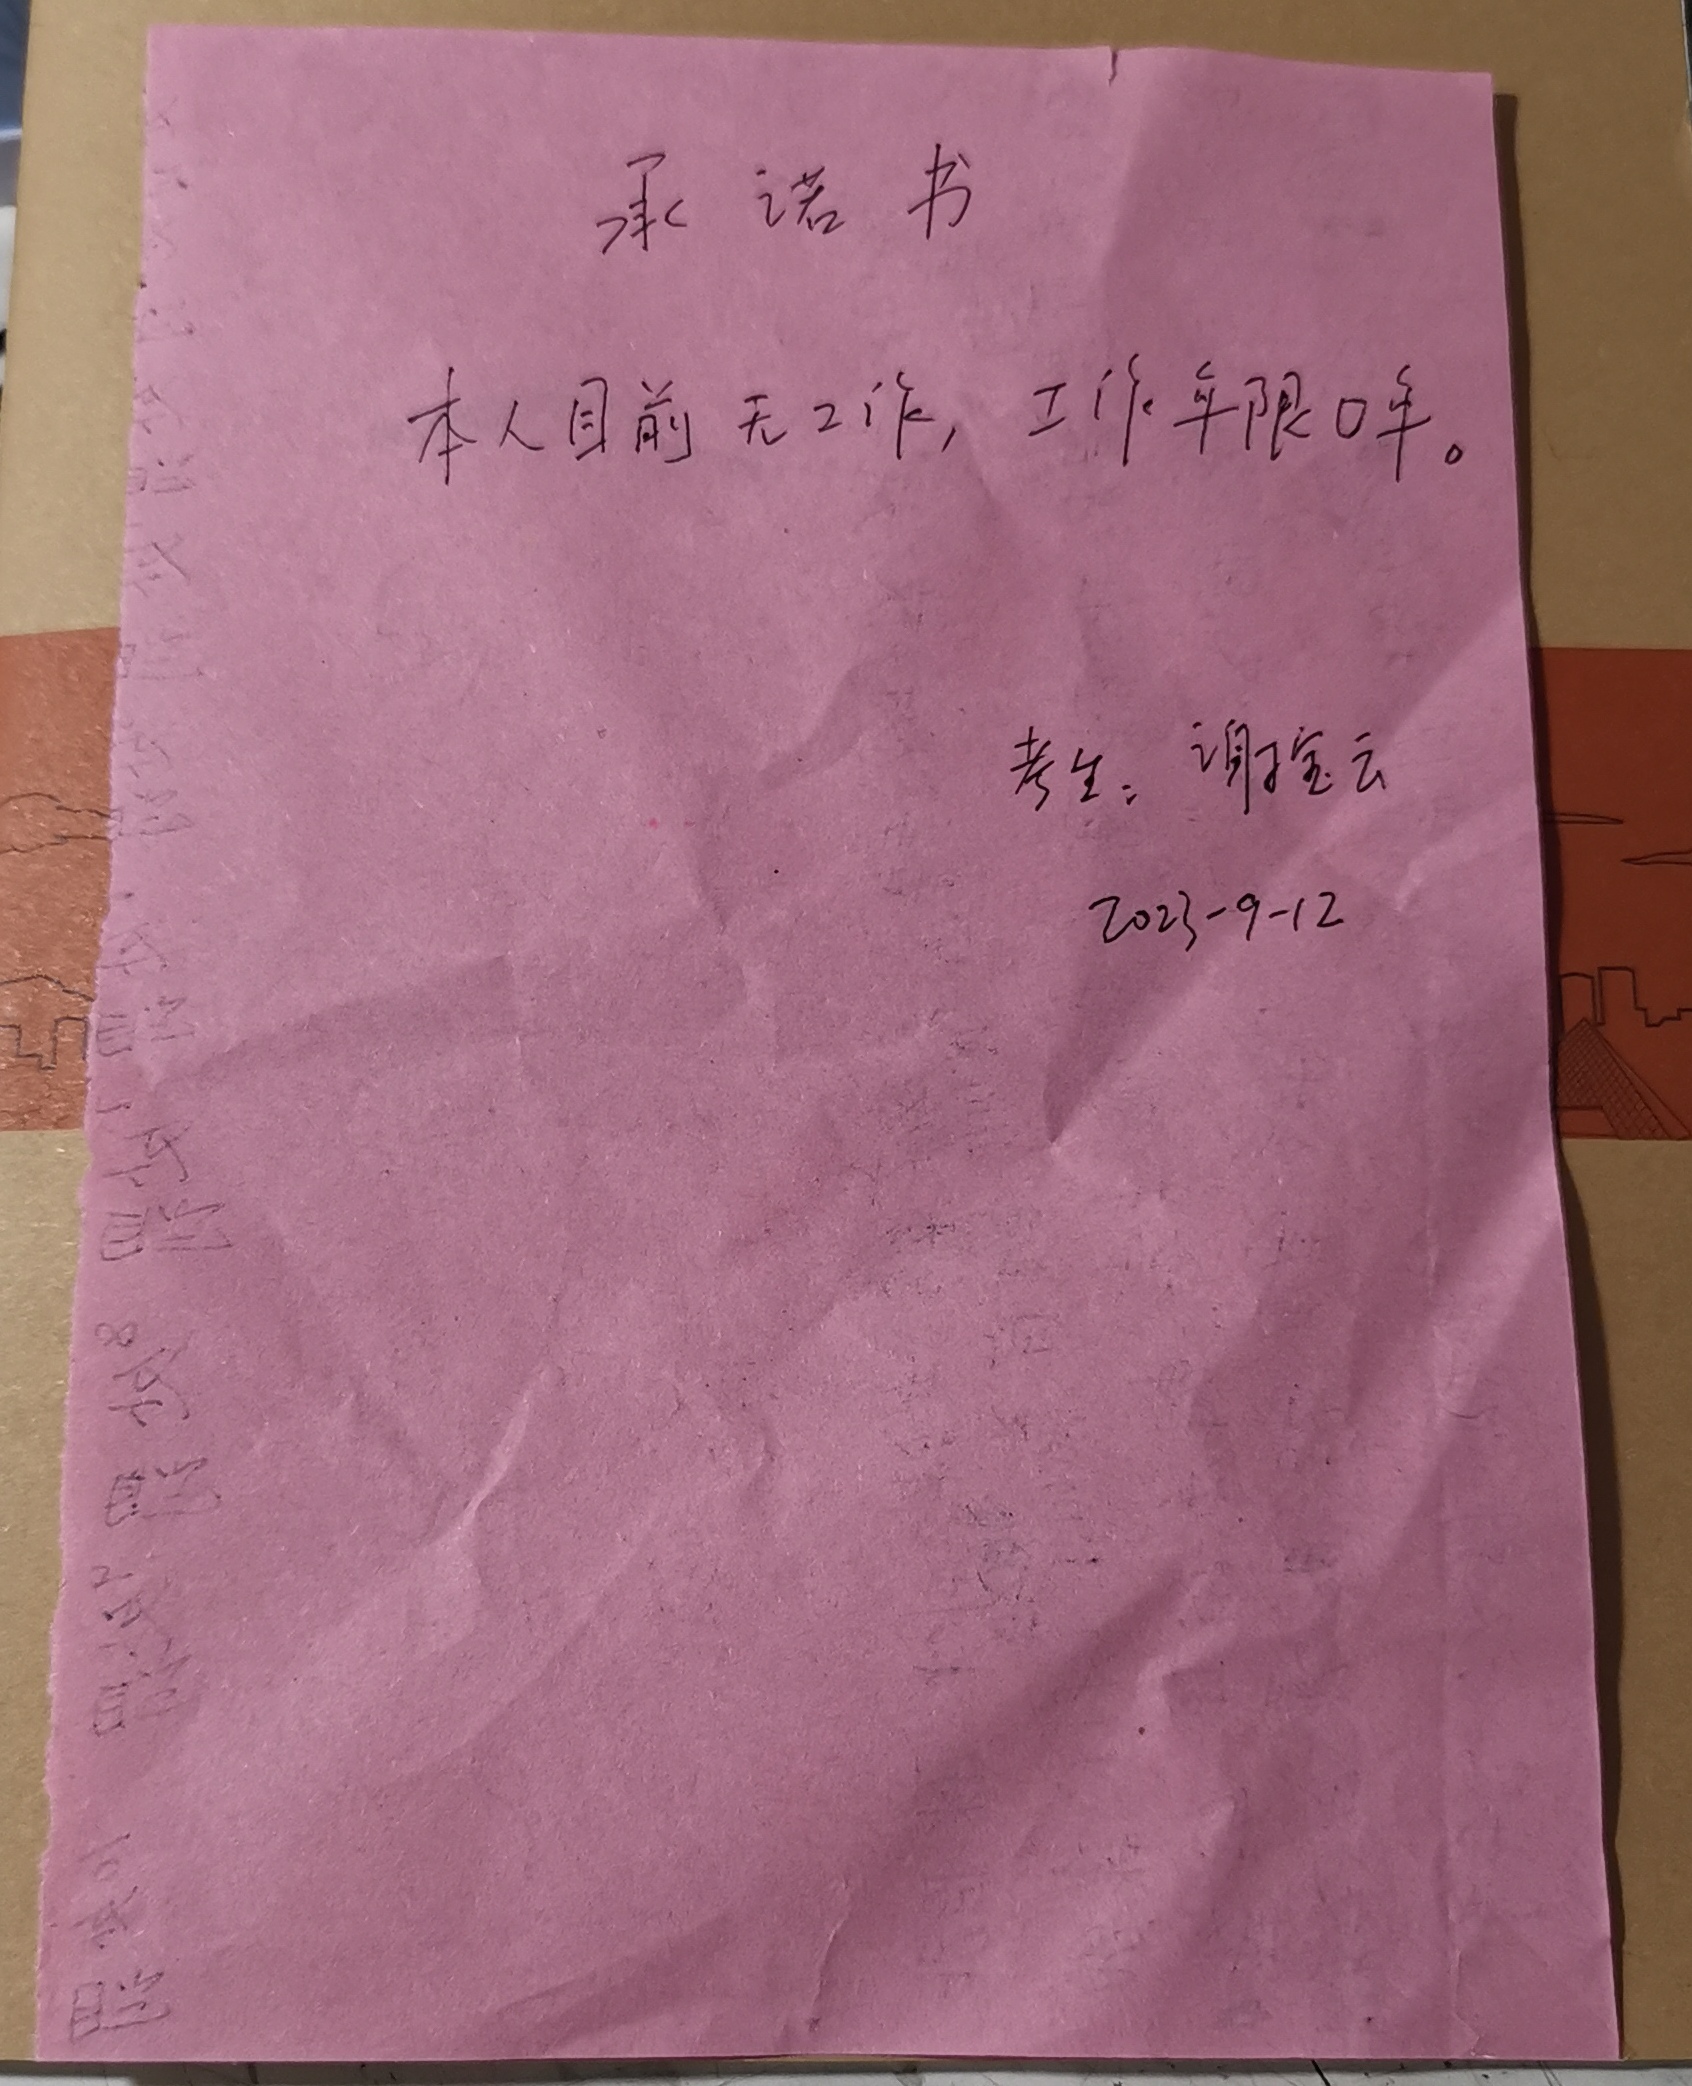 承诺书
本人目前无工作，工作年限0年。
考生：谢宝云
2023-9-12